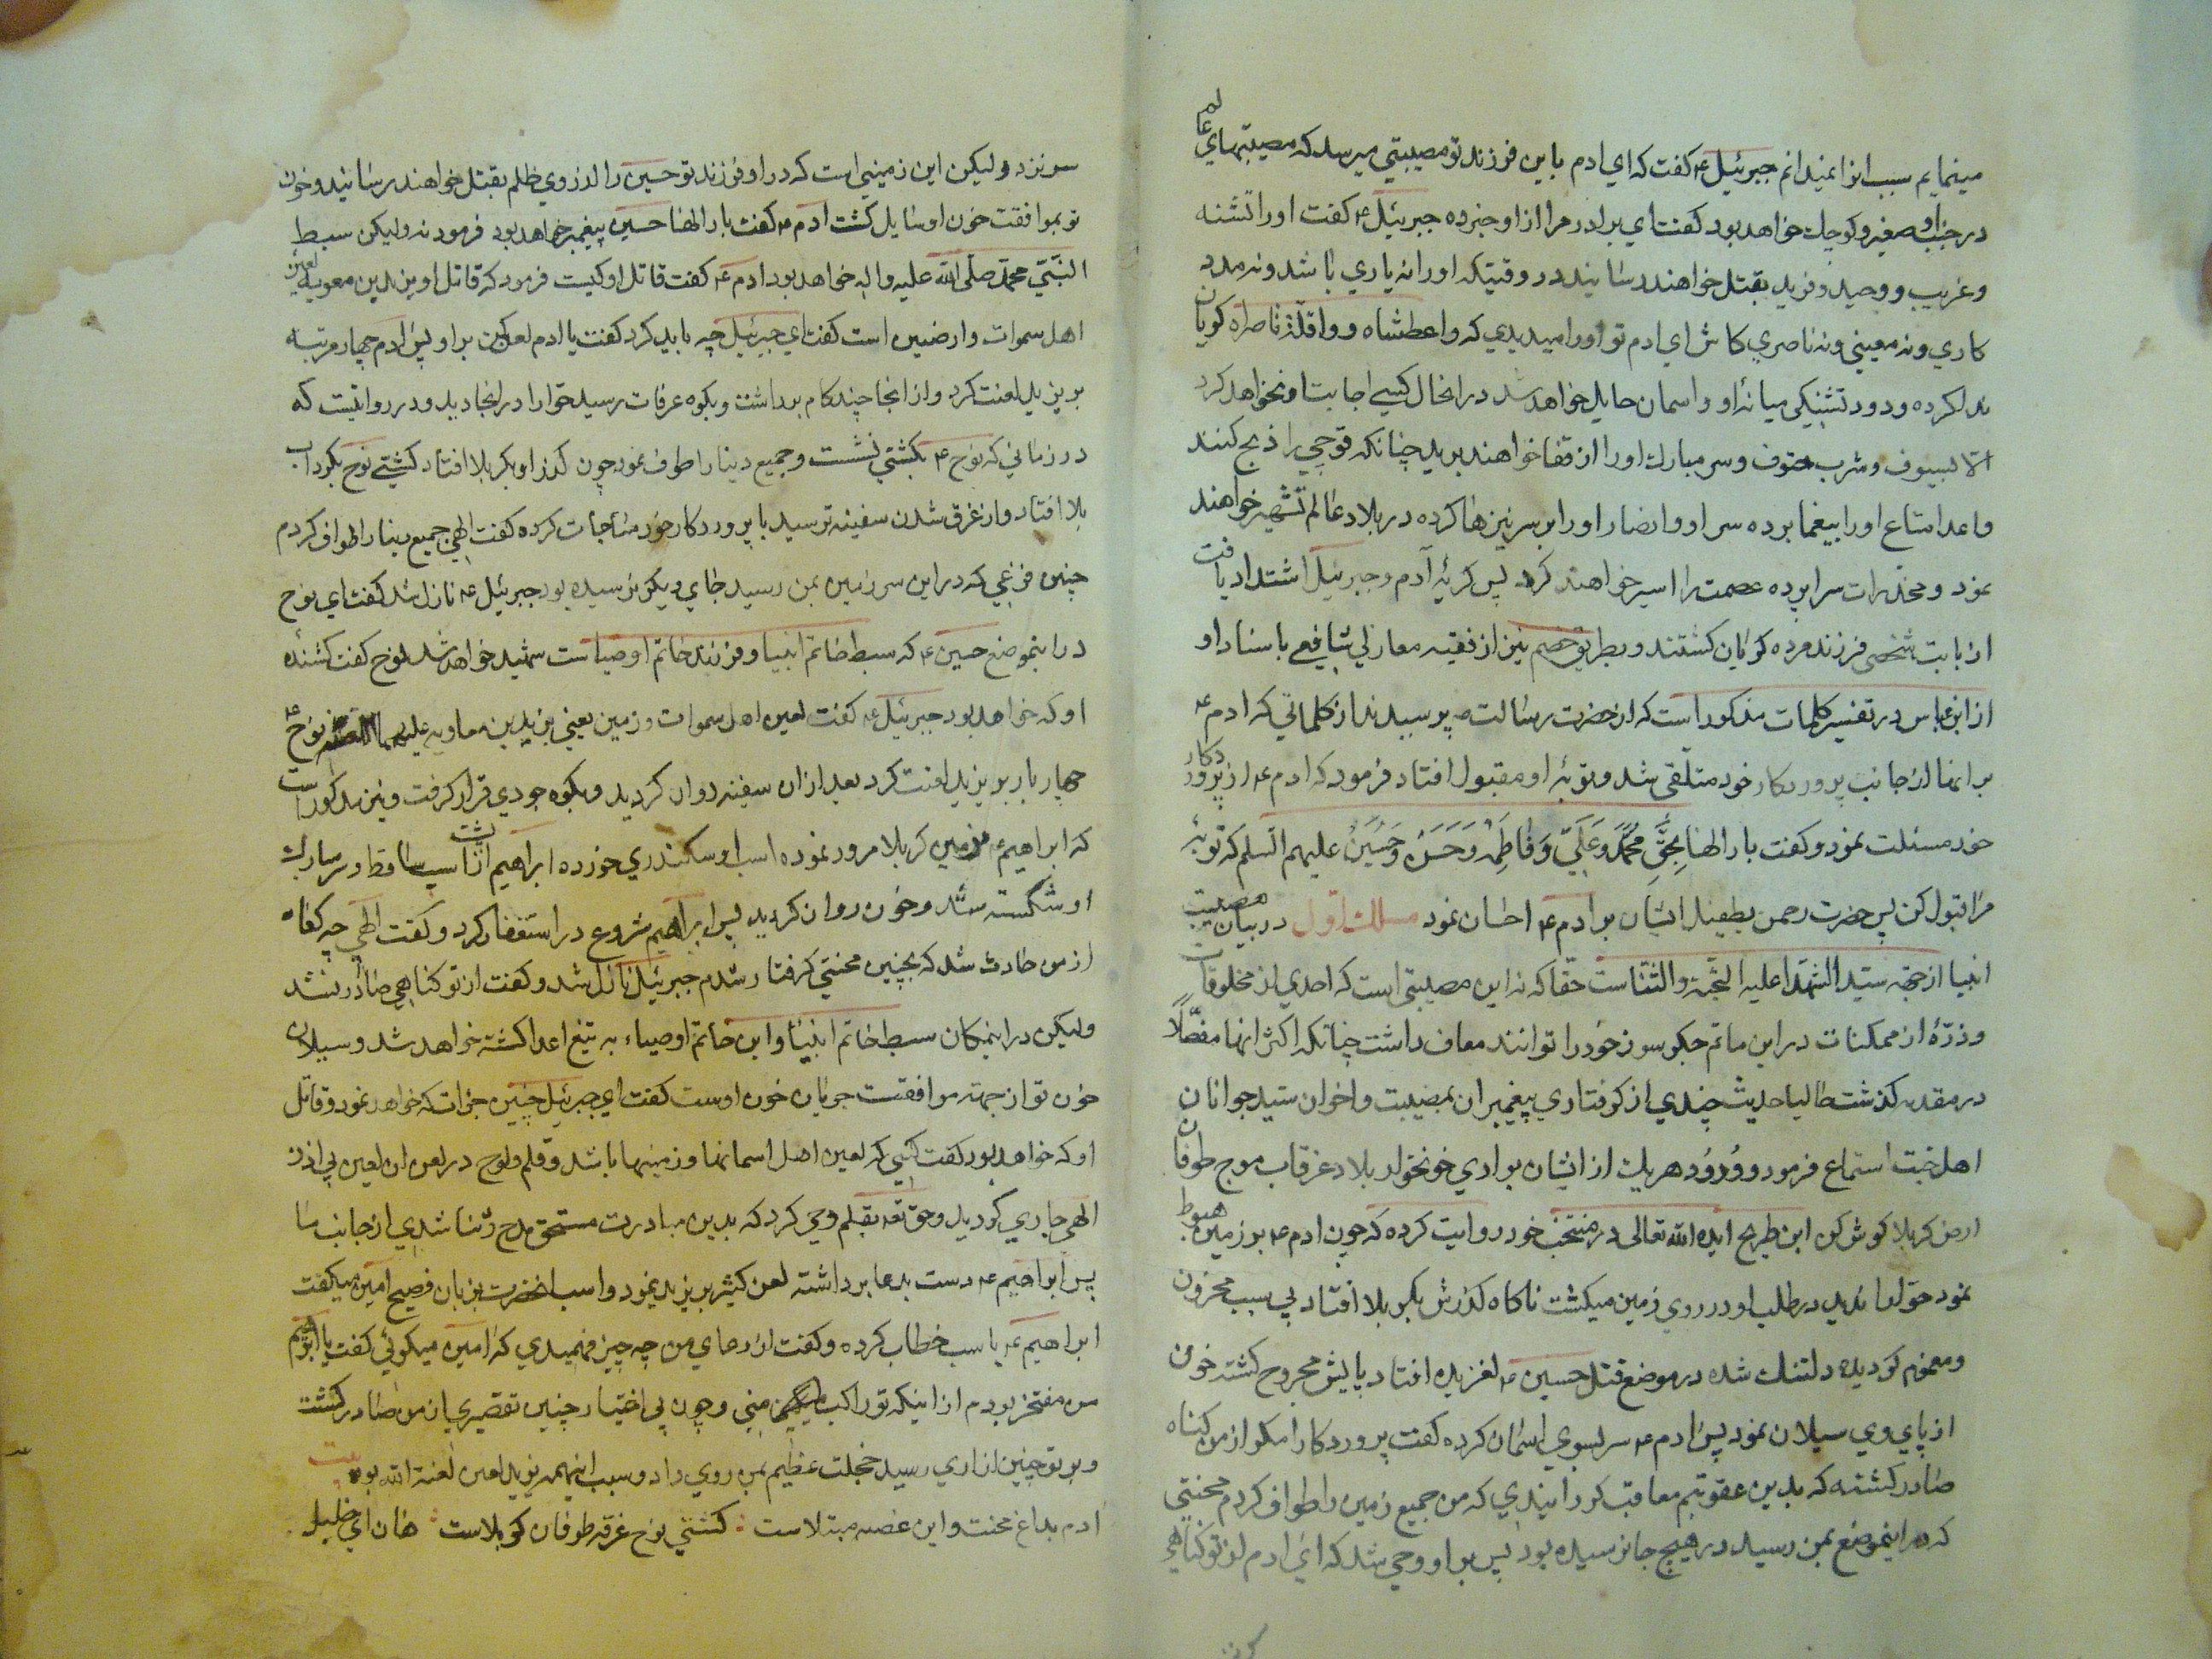 مینمایم سبب انرا نمیدانم جبرئیل ع کفت که ای ادم باین فرزند تو مصیبتی میرسد که مصیبتهای عالم
در جنب او صغیر و کوچک خواهد بود کفت ای برادر مرا از او خبر ده جبرئیل ع کفت او را تشنه
و غریب و وحید و فرید بقتل خواهند رسانید در وقتیکه او را نه یاری باشد و نه مدد
کاری و نه معینی و نه ناصری کاش ای ادم تو او را میدیدی که واعطشاه وواقلة ناصراه کویان
بدل کرده و دود تشنکی میانه او و اسمان حایل خواهد شد در انحال کسی اجابت او نخواهد کرد
الا بسیوف و شرب حتوف و سر مبارک او را از قفا خواهند برید چنانکه قوچی را ذبح کنند
و اعدا متاع او را بیغما برده سر او و انصار او را بر سر نیزها کرده در بلاد عالم تشهیر خواهند
نمود و مخدرات سراپرده عصمت را اسیر خواهند کرد پس کریه آدم و جبرئیل اشتداد یافت
از بابت شخصی فرزند مرده کریان کشتند و بطریق خصم نیز از فقیه مغازلی شافعی باسناد او
از ابن عباس در تفسیر کلمات مذکور است که از حضرت رسالت ص پرسیدند از کلماتی که ادم ع
برانها از جانب پروردکار خود متلقی شد و توبه او مقبول افتاد فرمود که ادم ع از پروردکار
خود مسئلت نمود و کفت بار الهنا بِحَقِّ مُحَمَّدٍ وَعَلَيٍّ وَفَاطِمَةَ وَحَسَنٍ وَحُسَيْنٍ علیهم السلم که توبه
مرا قبول کن پس حضرت رحمن بطفیل ایشان بر ادم ع احسان نمود مسلک اول در بیان مصیبت
انبیا از جهة سید الشهدا علیه التحیة والثناست حقا که نه این مصیبتی است که احدی از مخلوقات
و ذرّهٔ از ممکنات در این ماتم جکر سوز خود را توانند معاف داشت چنانکه اکثر انها مفصّلًا
در مقدمه کذشت طالبا حدیث چندی از کرفتاری پیغمبران بمصیبت و اخوان سید جوانان
اهل جنت استماع فرمود و وُرُود هر یک از ایشان بوادی خونخوار بلا و غرقاب موج طوفان
ارض کربلا کوش کن ابن طریح ایده الله تعالی در منتخب خود روایت کرده که چون ادم ع بر زمین هبوط
نمود حوّا را ندید در طلب او در روی زمین میکشت ناکاه کذرش بکربلا افتاد بی سبب محزون
و مغموم کردیده دلتنک شده در موضع قتل حسین ع لغزیده افتاد پایش مجروح کشته خون
از پای وی سیلان نمود پس ادم ع سر بسوی اسمان کرده کفت پروردکارا مکر از من کناه
صادر کشته که بدین عقوبتم معاقب کردانیدی که من جمیع زمین را طواف کردم محنتی
که در اینموضع بمن رسید در هیچ جا نرسیده بود پس بر او وحی شد که ای ادم از تو کناهی
سر نزد ولیکن این زمینی است که در او فرزند تو حسین را از روی ظلم بقتل خواهند رسانید و خون
تو بموافقت خون او سایل کشت ادم ع کفت بار الهنا حسین پیغمبر خواهد بود فرمود نه ولیکن سبط
النبّی محمّد صلّی الله علیه واله خواهد بود ادم ع کفت قاتل او کیست فرمود که قاتل او یزید بن معویه لعین
اهل سموات و ارضین است کفت ای جبرئیل چه باید کرد کفت یا ادم لعن کن بر او پس ادم چهار مرتبه
بر یزید لعنت کرد و از انجا چند کام برداشت و بکوه عرفات رسید حوا را در انجا دید و در روایتست که
در زمانی که نوح ع بکشتی نشست و جمیع دنیا را طوف نمود چون کذر او بکربلا افتاد کشتی نوح بکرداب
بلا افتاد و از غرق شدن سفینه ترسید با پروردکار خود مناجات کرده کفت الهی جمیع دنیا را طواف کردم
چنین فزعی که در این سرزمین بمن رسید جای دیکر نرسیده بود جبرئیل ع نازل شد کفت ای نوح
در اینموضع حسین ع که سبط خاتم انبیا و فرزند خاتم اوصیاست شهید خواهد شد نوح کفت کشندهٔ
او که خواهد بود جبرئیل ع کفت لعین اهل سموات و زمین یعنی یزید بن معاویه علیهما نوح ع
چهار بار بر یزید لعنت کرد بعد از ان سفینه روان کردید و بکوه جودی قرار کرفت و نیز مذکور است
که ابراهیم ع بزمین کربلا مرور نموده اسب او سکندری خورده ابراهیم از پشت اسب ساقط و سر مبارک
او شکسته شد و خون روان کردید پس ابراهیم شروع در استغفار کرد و کفت الهی چه کناه
از من حادث شد که بچنین محنتی کرفتار شدم جبرئیل نازل شد و کفت از تو کناهی صادر نشد
ولیکن در اینمکان سبط خاتم انبیا و ابن خاتم اوصیاء به تیغ اعدا کشته خواهد شد و سیلان
خون تو از جهة موافقت جریان خون اوست کفت ای جبرئیل چنین جرات که خواهد نمود و قاتل
او که خواهد بود کفت کسی که لعین اهل اسمانها و زمینها باشد و قلم و لوح در لعن ان لعین بی اذن
الهی جاری کردید و حق تعه بقلم وحی کرد که بدین مبادرت مستحق مدح و ثنا شدی از جانب ما
پس ابراهیم ع دست بدعا برداشته لعن کثیر بر یزید نمود و اسب انحضرت بزبان فصیح امین میکفت
ابراهیم ع باسب خطاب کرده و کفت از دعای من چه چیز فهمیدی که امین میکوئی کفت یا ابراهیم
من مفتخر بودم از اینکه تو راکب منی و چون بی اختیار چنین تقصیری از من صادر کشت
و بر تو چنین ازاری رسید خجلت عظیم بمن روی داد و سبب اینهمه یزید لعین لعنة الله بود بیت
ادم بداغ محنت و این غصه مبتلاست : کشتی نوح غرقه طوفان کربلاست : هان ای خلیل